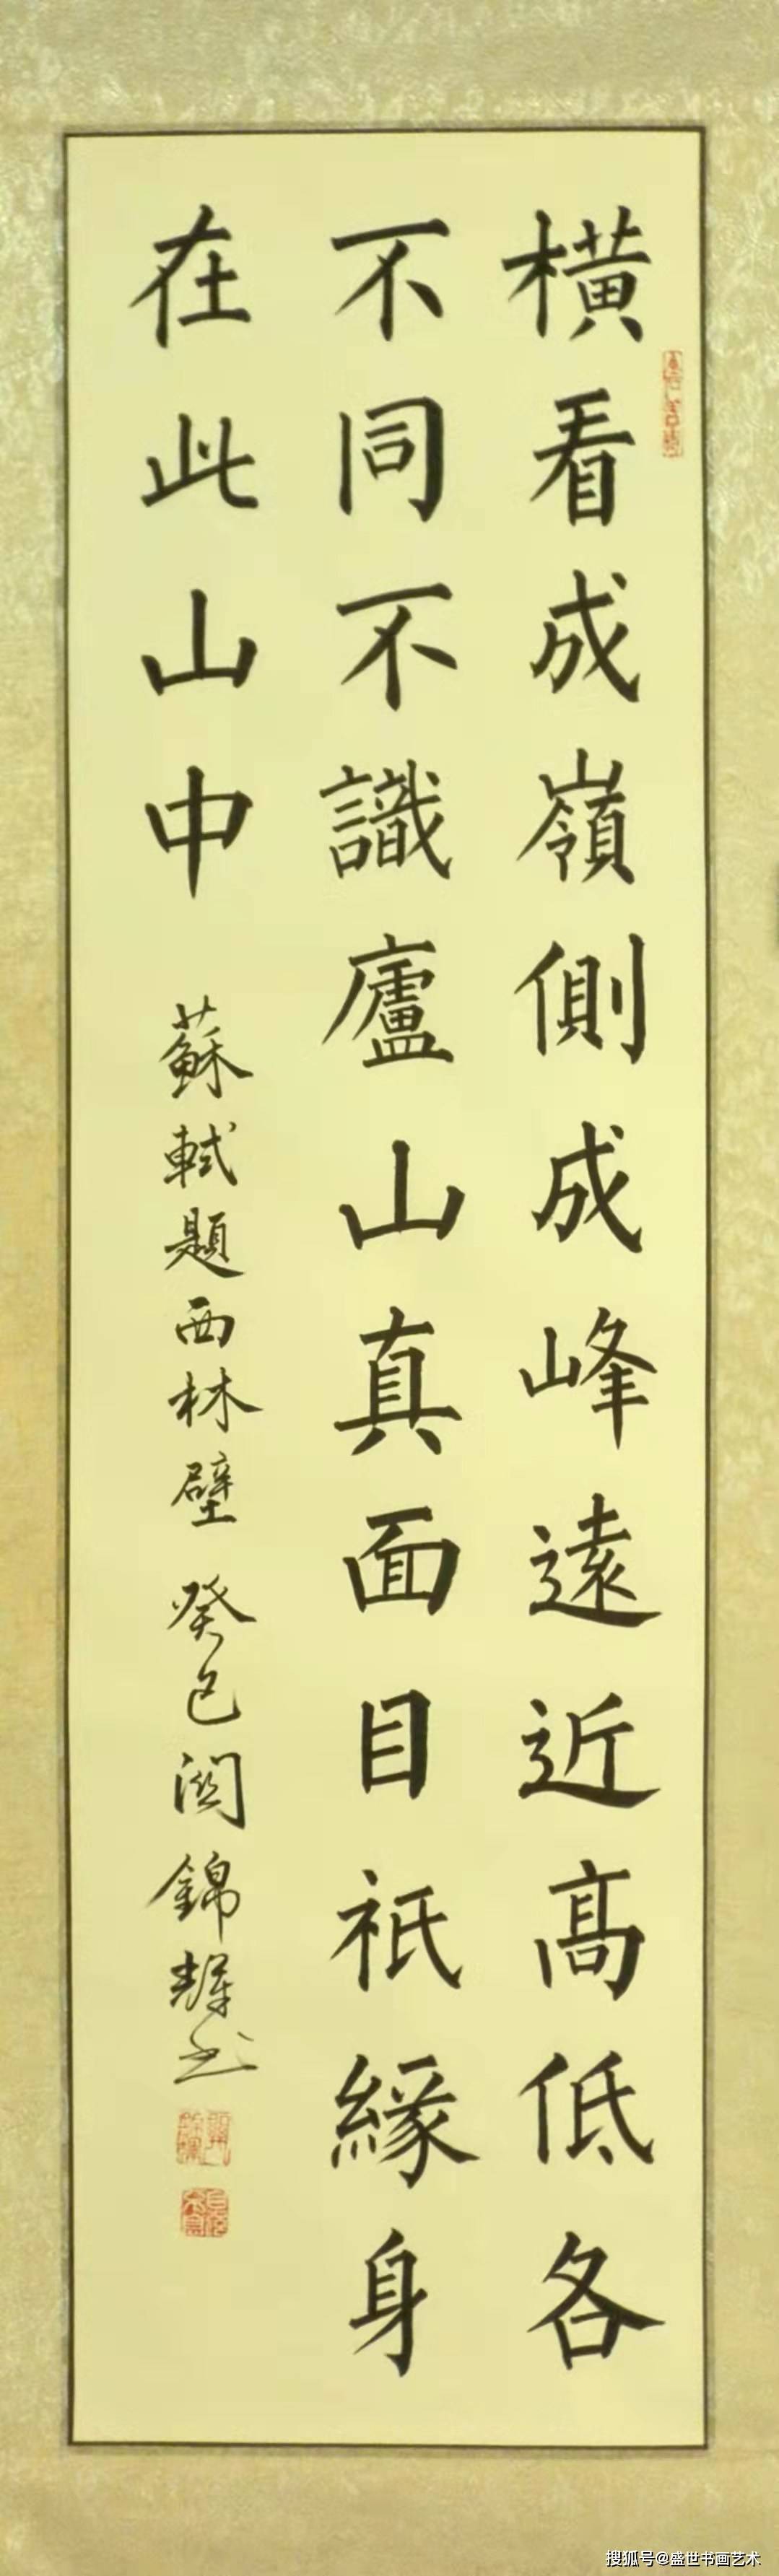 橫看成嶺側成峰遠近高低各
不同不識廬山真面目祇緣身
在此山中
蘇軾題西林壁 癸巳關錦輝书
搜狐号@盛世书画艺术